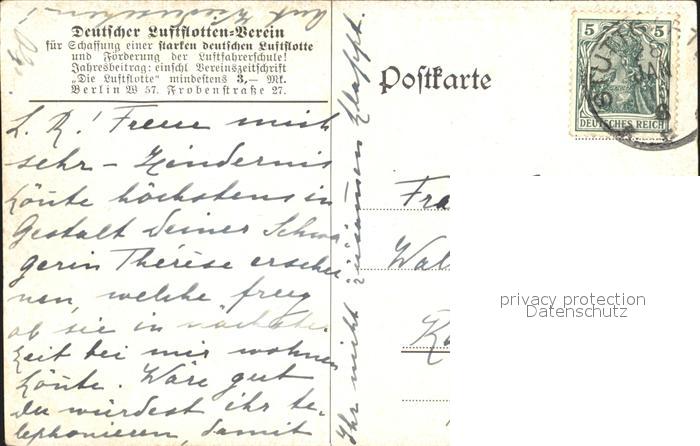 Deutscher Luftflotten-Verein
für Schaffung einer starken deutschen Luftflotte
und Förderung der Luftfahrerschule!
Jahresbeitrag: einschl Vereinszeitschrift
„Die Luftflotte“ mindestens 3,— Mk.
Berlin W 57. Frobenstraße 27.
L. R.! Freue mich
sehr – Hindernis
könte höchstens in
Gestalt deiner Schwä
gerin Thérèse erschei
nen, welche frug
ob sie in nächster
Zeit bei mir wohnen
könte. Wäre gut
du würdest ihr te-
lephonieren, damit
Ihr nicht zusammen klappt.
Postkarte
5 5
DEUTSCHES REICH
STUTTG
JAN
Fra
Wal
privacy protection
Datenschutz